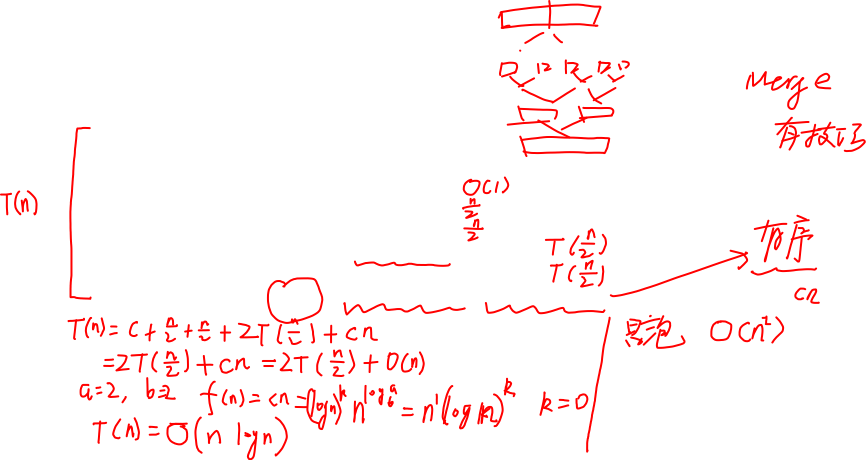 Merge
有技巧
T(n)
O(1)
n/2
n/2
T(n/2)
T(n/2)
有序
cn
T(n) = c + n/2 + n/2 + 2T(n/2) + cn
冒泡 O(n²)
= 2T(n/2) + cn = 2T(n/2) + O(n)
a=2, b=2 f(n) = cn = (log n)^k n^(log_b a) = n^1 (log n)^k k=0
T(n) = O(n log n)